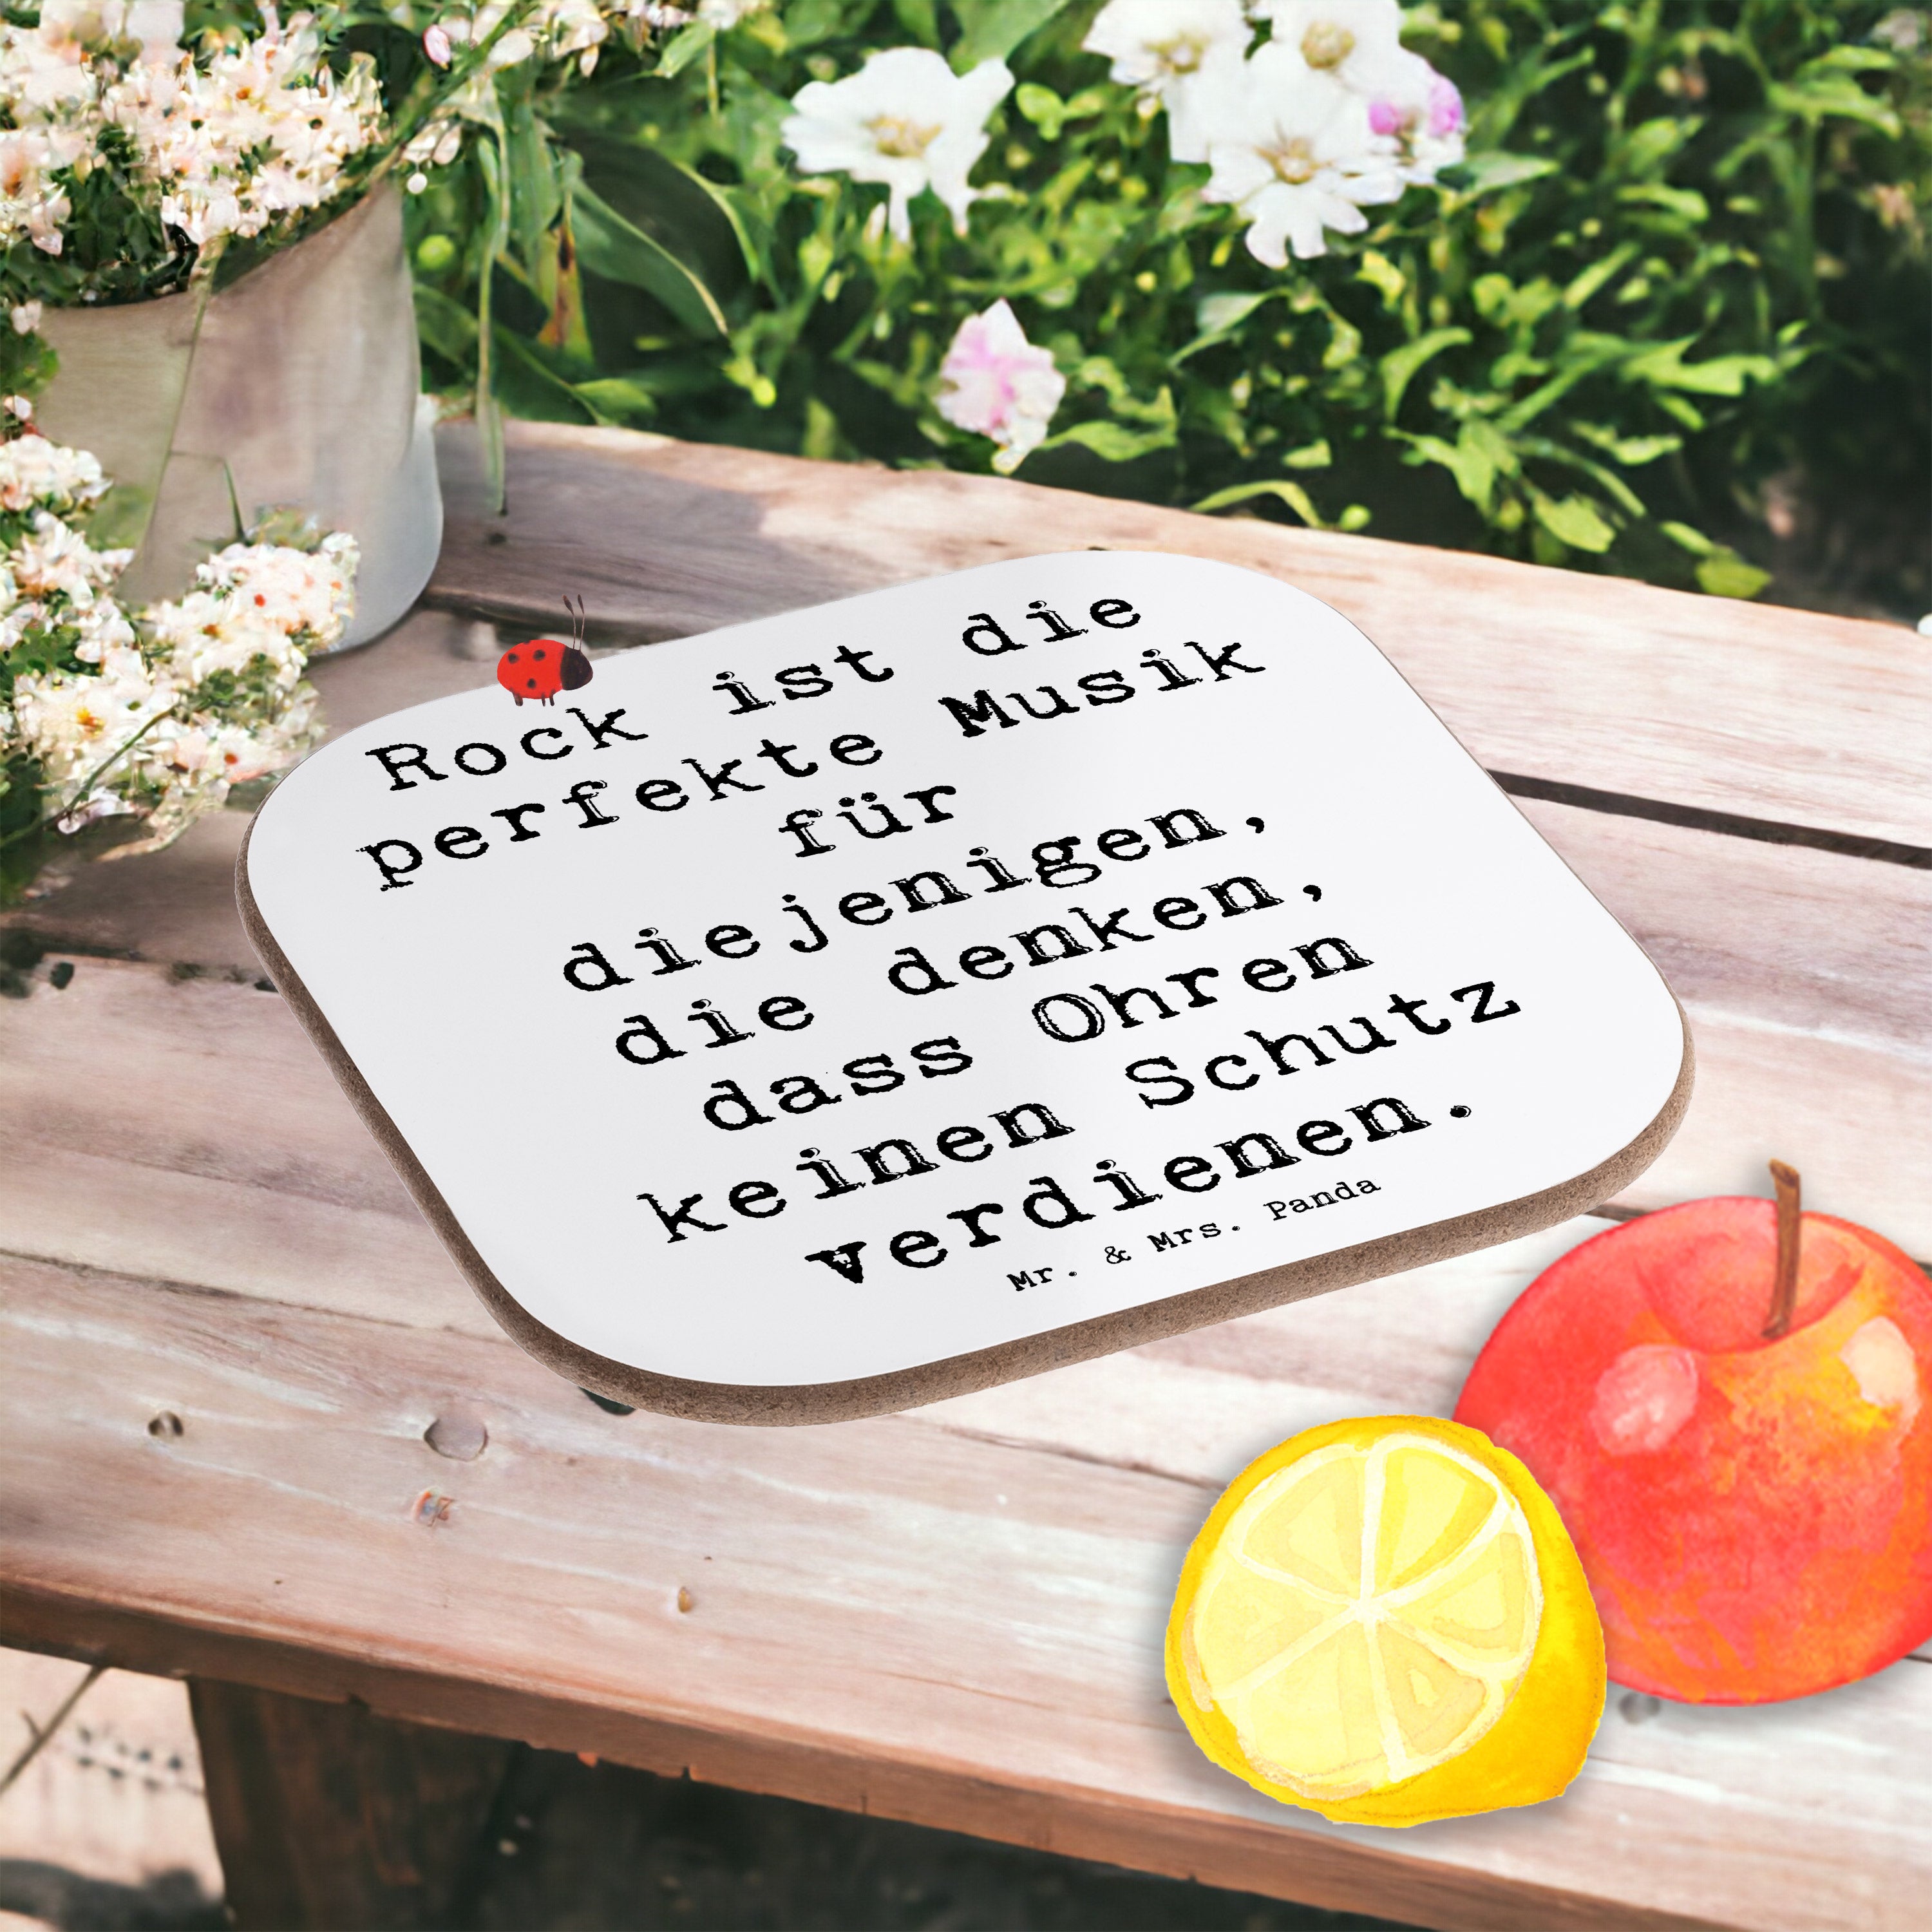 Rock ist die
perfekte Musik
für
diejenigen,
die denken,
dass Ohren
keinen Schutz
verdienen.
Mr. & Mrs. Panda